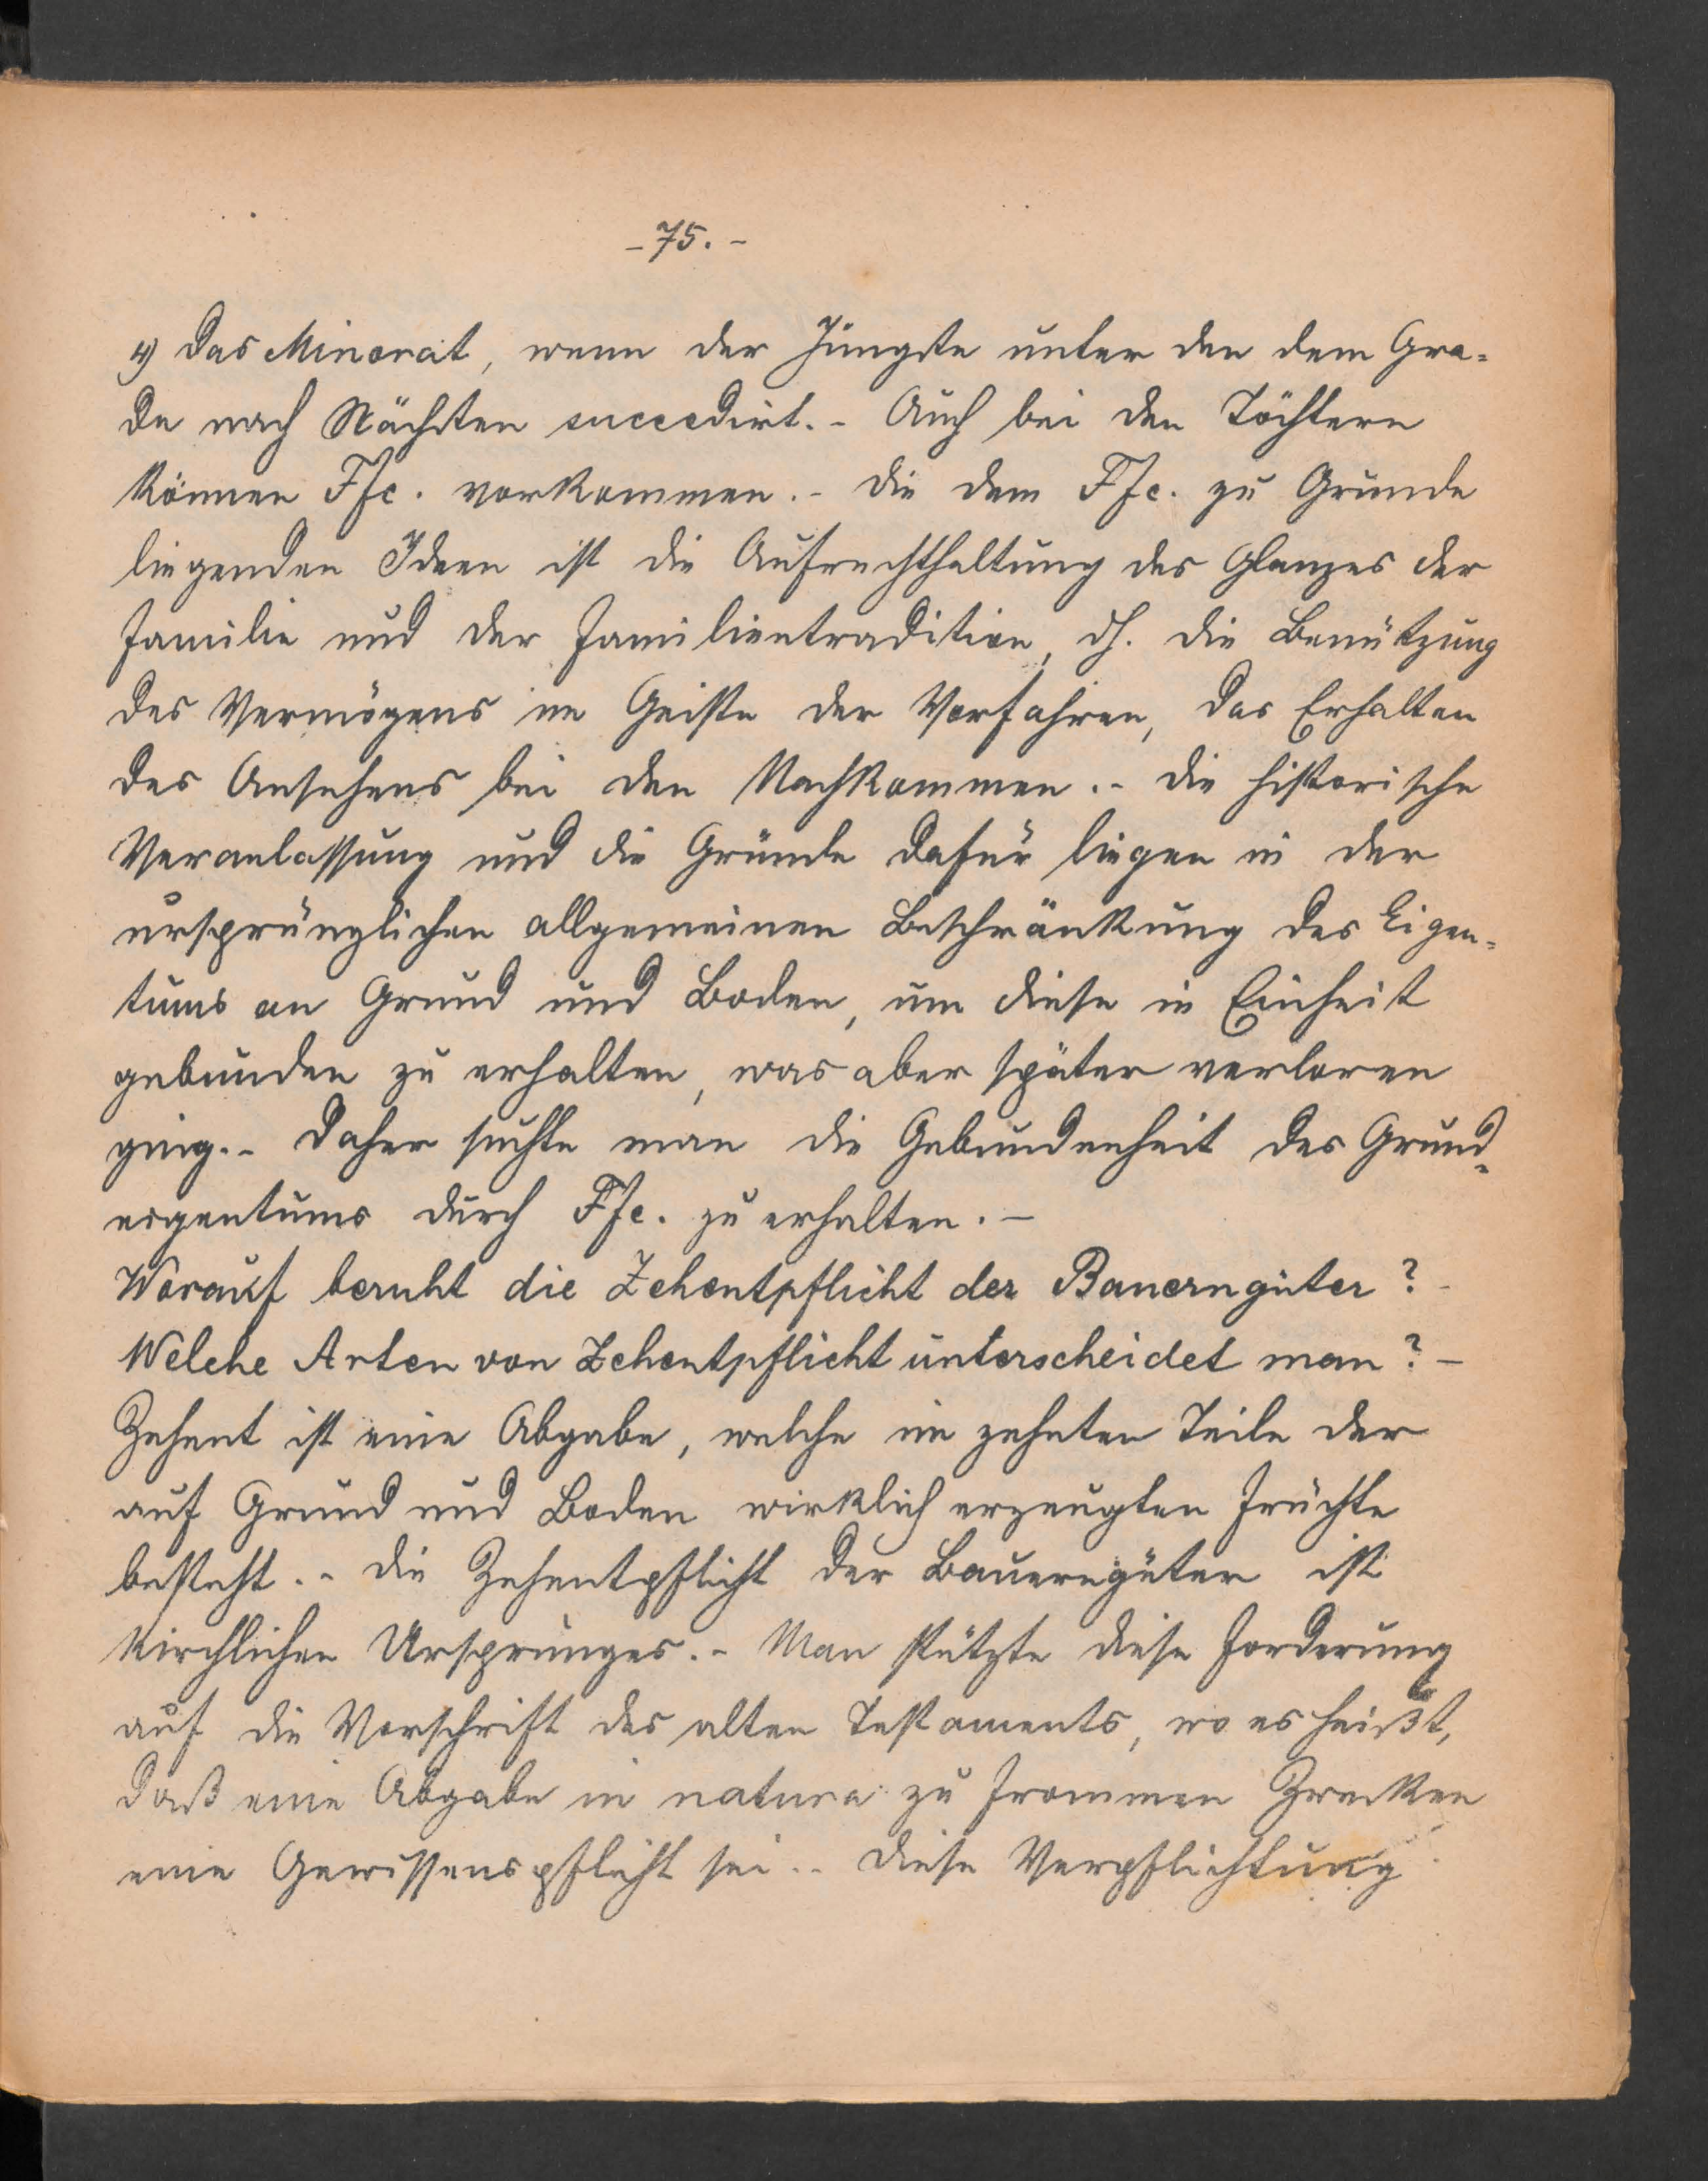 - 75. -
4) das Minorat, wenn der Jüngste unter den dem Gra-
de nach Nächsten succedirt. - Auch bei den Töchtern
können Ffc. vorkommen. - Die dem Ffc. zu Grunde
liegenden Ideen ist die Aufrechthaltung des Glanzes der
Familie und der Familientradition, dh. die Benützung
des Vermögens im Geiste der Vorfahren, das Erhalten
des Ansehens bei den Nachkommen. - Die historische
Veranlassung und die Gründe dafür liegen in der
ursprünglichen allgemeinen Beschränkung des Eigen-
tums an Grund und Boden, um diese in Einheit
gebunden zu erhalten, was aber später verloren
ging. - Daher suchte man die Gebundenheit des Grund-
eigentums durch Ffc. zu erhalten. -
Worauf beruht die Zehentpflicht der Bauerngüter? -
Welche Arten von Zehentpflicht unterscheidet man? -
Zehent ist eine Abgabe, welche im zehnten Teile der
auf Grund und Boden wirklich erzeugten Früchte
besteht. - Die Zehentpflicht der Bauerngüter ist
kirchlichen Ursprunges. - Man stützte diese Forderung
auf die Vorschrift des alten Testaments, wo es heißt,
daß eine Abgabe in natura zu frommen Zwecken
eine Gewissenspflicht sei. - Diese Verpflichtung